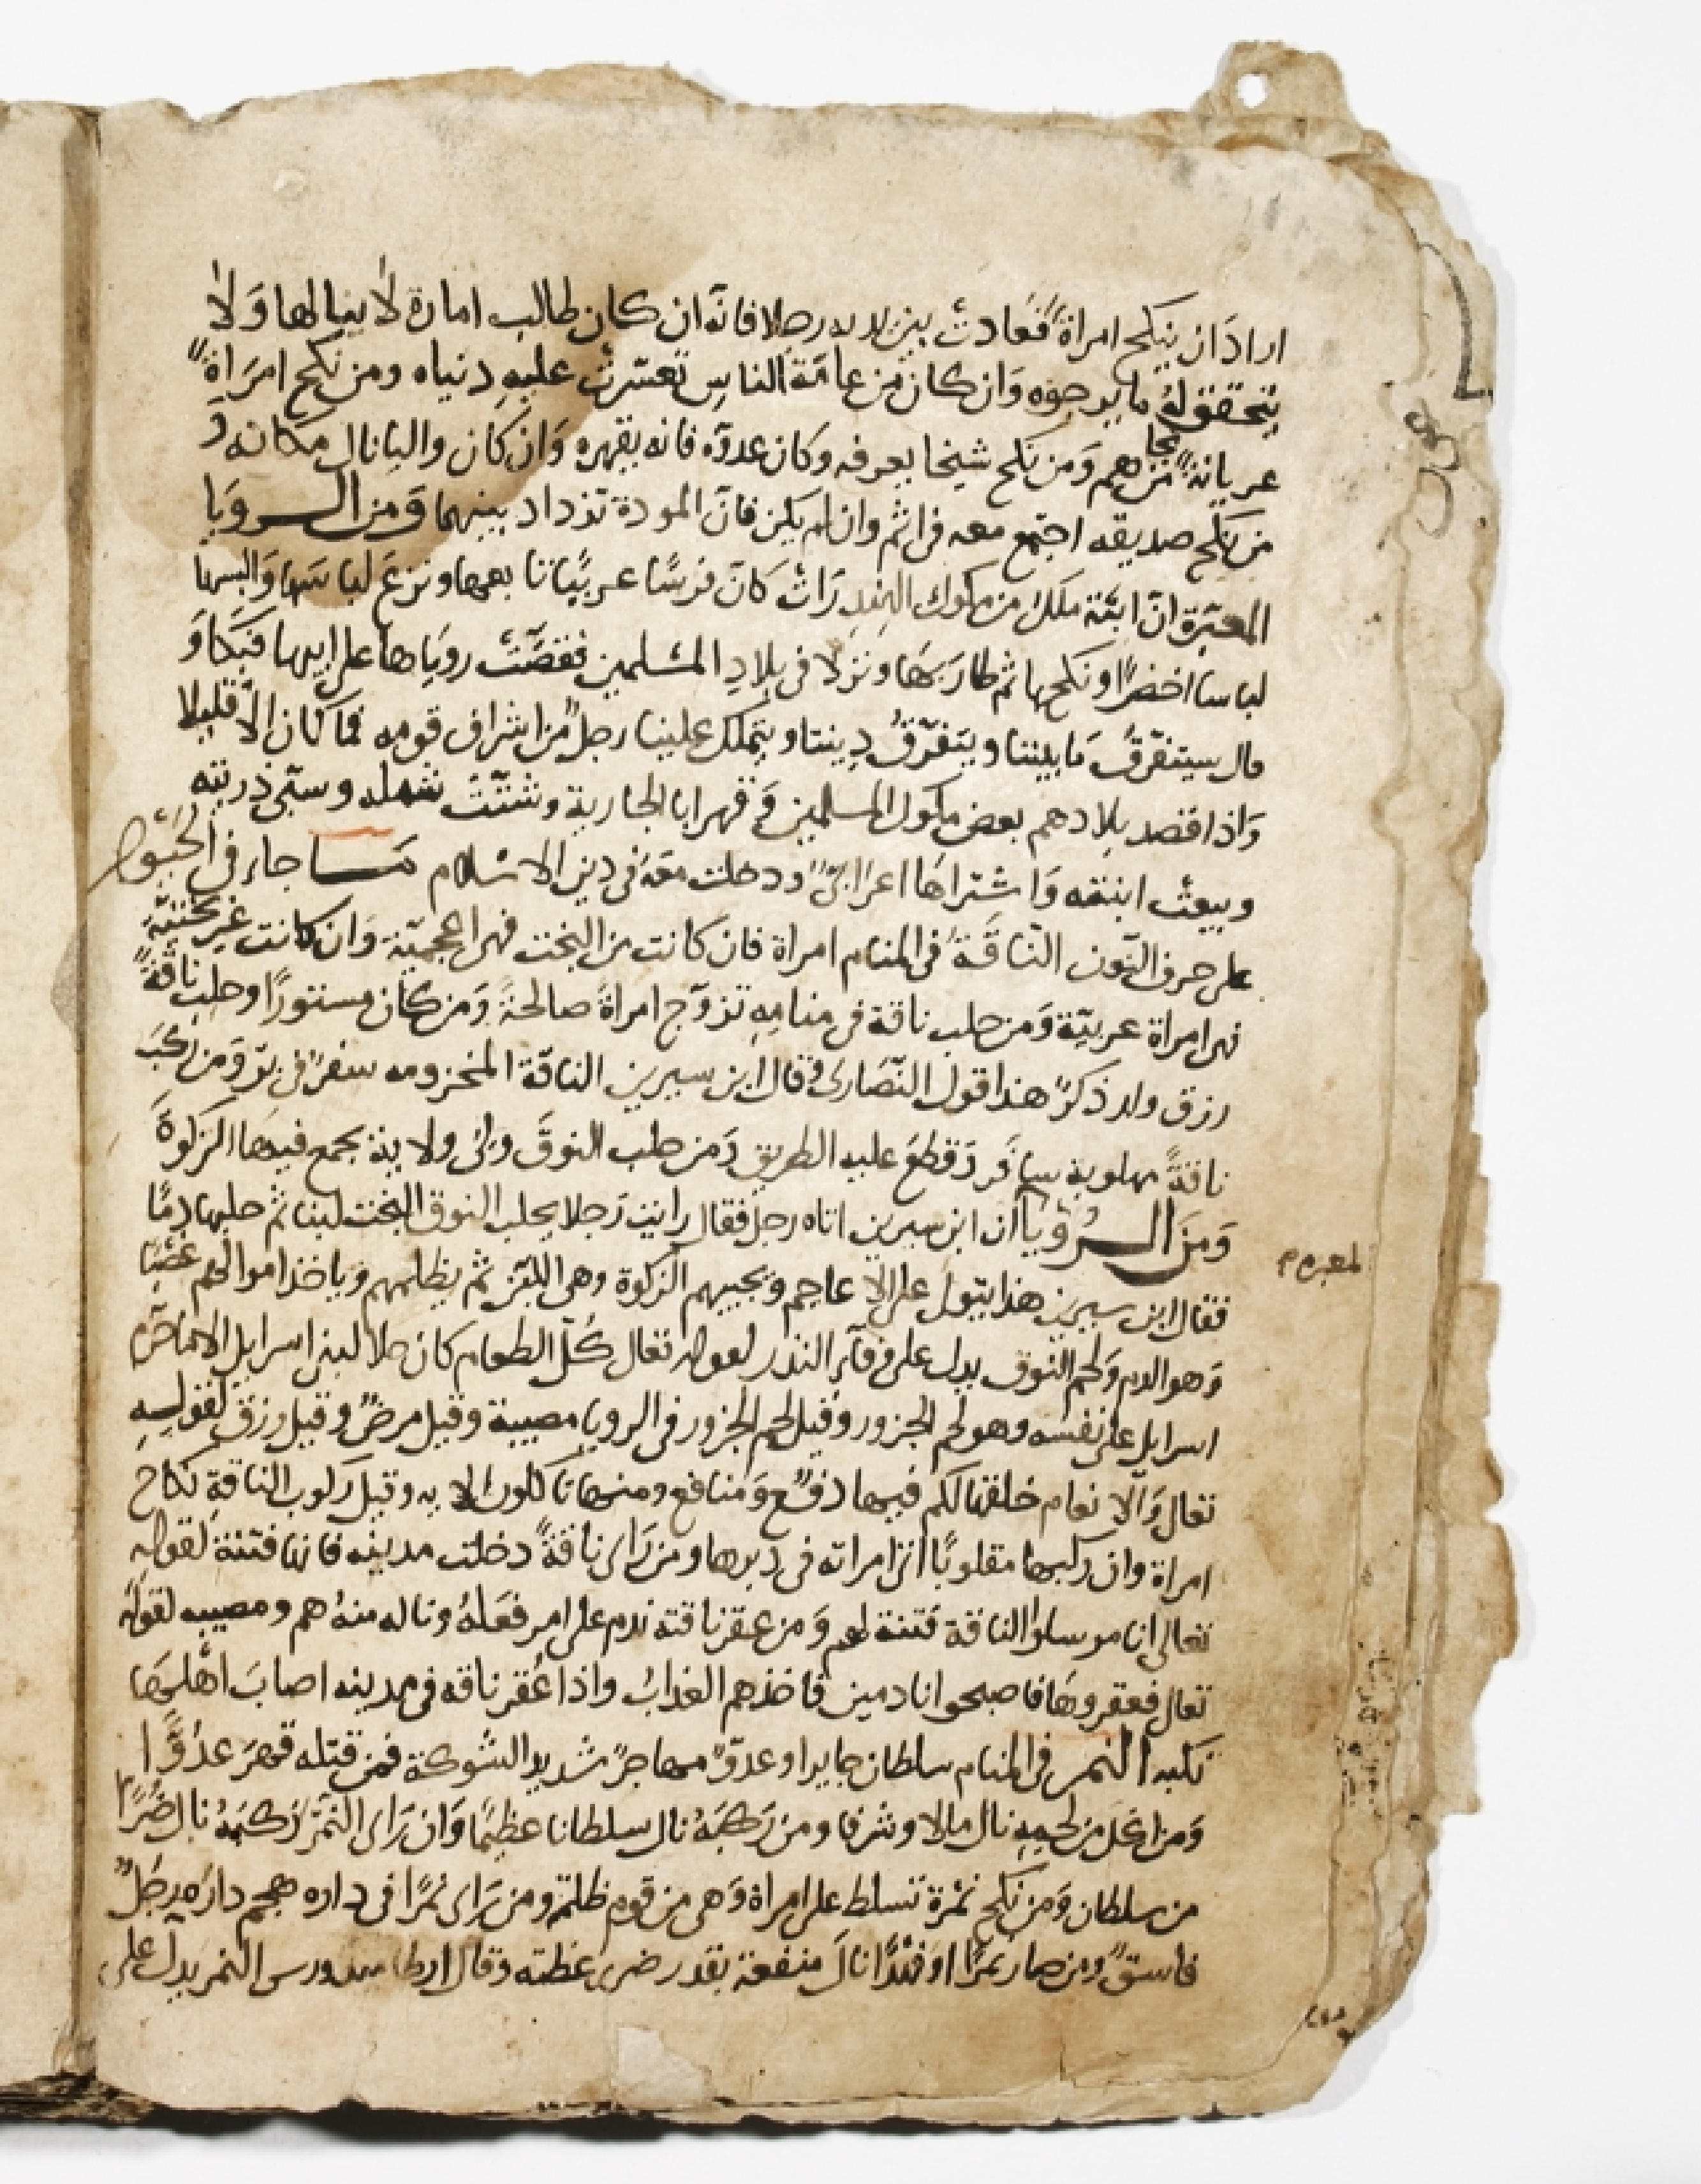 اراد ان ينكح امراة فعادت بين يديه رجلا فانه ان كان طالب امارة لا ينالها ولا
يتحقق له ما يرجوه وان كان من عامة الناس تعسرت عليه دنياه ومن نكح امراة
عريانة نجا من هم ومن نكح شيخا يعرفه وكان عدوه فانه يقهره وان كان واليا نال مكانه و
من نكح صديقه اجتمع معه في اثم وان لم يكن فان المودة تزداد بينهما ومن الرويا
المعبرة ان ابنة ملك من ملوك الهند رات كان فرسا عربيا نا بعها ونزع لباسها والبسها
لباسا اخضرا ونكحها ثم طار بها ونزلا في بلاد المسلمين فقصت روياها على ابيها فبكا و
قال سيتفرق ما بيننا ويتفرق ديننا ويتملك علينا رجل من اشراف قومه فما كان الا قليلا
واذا قصد بلادهم بعض ملوك المسلمين وقهر ابا الجارية وشتت شمله وسبى ذريته
وبيعت ابنته واشتراها اعرابي ودخلت معه في دين الاسلام ما جاء في الحيوان
على حرف النون الناقة في المنام امراة فان كانت من البخت فهي اعجمية وان كانت غير بختية
فهي امراة عربية ومن حلب ناقة في منامه تزوج امراة صالحة ومن كان مستورا وحلب ناقة
رزق ولد ذكر هذا قول النصارى وقال ابن سيرين الناقة المخزومه سفر في بر ومن ركب
ناقة مهلوبة سافر وقطع عليه الطريق ومن حلب النوق ولى ولاية يجمع فيها الزكوة
ومن الرويا ان ابن سيرين اتاه رجل فقال رايت رجلا يحلب النوق البخت لبنا ثم حلبها دما
المعبره م
فقال ابن سيرين هذا يتول على الاعاجم ويجبيهم الزكوة وهي اللبن ثم يظلمهم وياخذ اموالهم غصبا
وهو الدم ولحم النوق يدل على وفاء النذر لقوله تعالى كل الطعام كان حلا لبني اسرايل الا ما حرم
اسرايل على نفسه وهو لحم الجزور وقيل لحم الجزور في الرويا مصيبة وقيل مرض وقيل رزق لقوله
تعالى والانعام خلقها لكم فيها دفء ومنافع ومنها تاكلون الايه وقيل ركوب الناقة نكاح
امراة وان ركبها مقلوبا اتى امراته في دبرها ومن راى ناقة دخلت مدينه فانها فتنة لقوله
تعالى انا مرسلوا الناقة فتنة لهم ومن عقر ناقته ندم على امر فعله وناله منه هم ومصيبه لقوله
تعالى فعقروها فاصبحوا نادمين فاخذهم العذاب واذا عقر ناقه في مدينه اصاب اهلها
نكبه النمر في المنام سلطان جاير او عدو مهاجر شديد الشوكة فمن قتله قهر عدوا
ومن اكل من لحمه نال مالا وشرفا ومن ركبه نال سلطانا عظيما وان راى النمر ركبه نال ضررا
من سلطان ومن نكح نمرة تسلط على امراة وهي من قوم ظلمة ومن راى نمرا في داره هجم داره رجل
فاسق ومن صار نمرا او فهدا نال منفعة بقدر وقال ارطاميدورس النمر يدل على